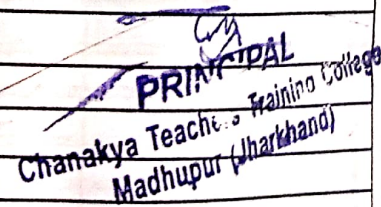 PRINCIPAL
Chanakya Teachers Training College
Madhupur (Jharkhand)